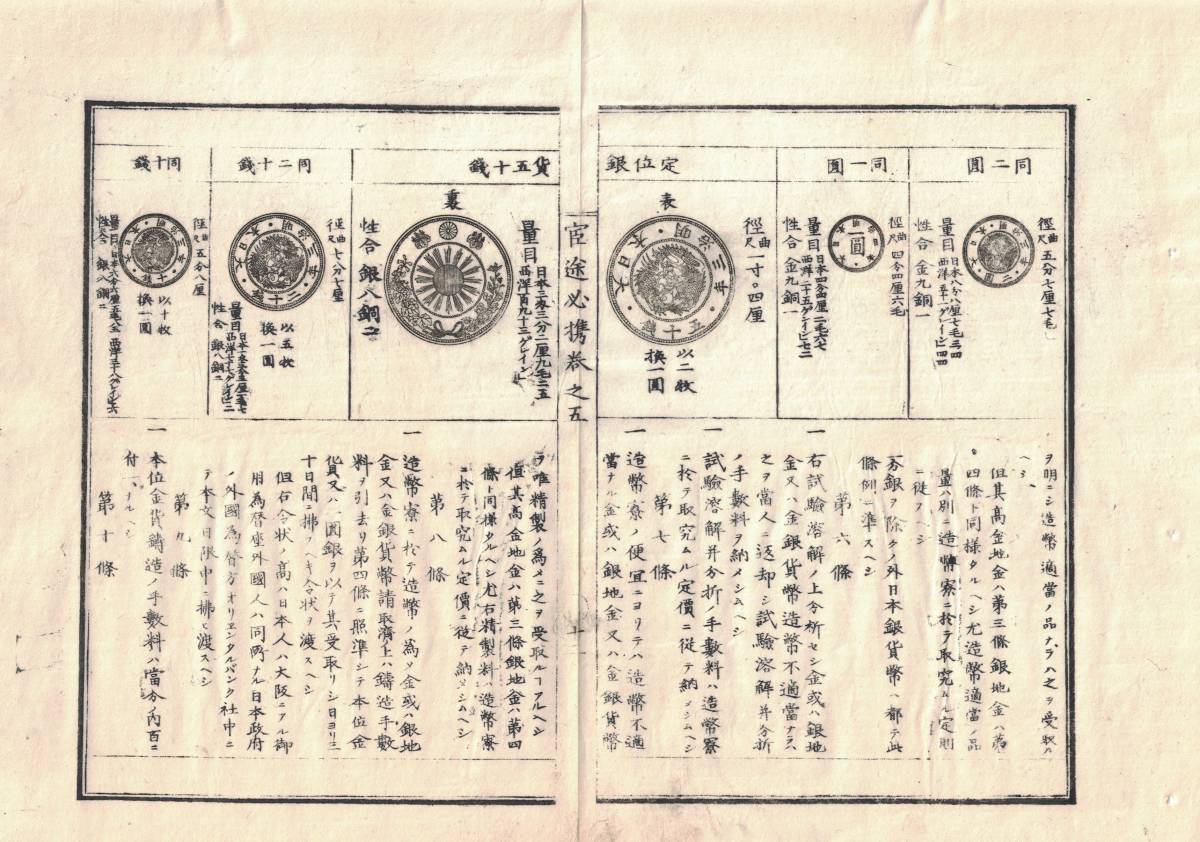 同二圓
徑曲尺五分七厘七毛
量目日本八分八厘七毛三四
西洋五十一グレイン四四
性合金九銅一
同一圓
徑曲尺四分四厘六毛
量目日本四分四厘二毛六七
西洋二十五グレイン七二
性合金九銅一
圓
定位銀
表
徑曲尺一寸〇四厘
大日本・明治三年・五十錢
以二枚
換一圓
ヲ明ニシ造幣適當ノ品ナラハ之ヲ受取ル
ヘシ
但其髙金地金ハ第三條銀地金ハ第
四條ト同様タルヘシ尤造幣適當ノ品
量ハ別ニ造幣寮ニ於テ取究ムル定則
ニ從フヘシ
一分銀ヲ除クノ外日本銀貨幣ハ都テ此
條例ニ準スヘシ
第六條
一右試驗溶解ノ上分析セシ金或ハ銀地
金又ハ金銀貨幣造幣不適當ナラハ
之ヲ當人ニ返却シ試驗溶解并分析
ノ手數料ヲ納メシムヘシ
一試驗溶解并分析ノ手數料ハ造幣寮
ニ於テ取究ムル定價ニ從テ納メシムヘシ
第七條
一造幣寮ノ便宜ニヨリテハ造幣不適
當ナル金或ハ銀地金又ハ金銀貨幣
官途必携卷之五
貨五十錢
裏
量目日本三匁三分二厘九毛二五
西洋百九十三グレイン
性合銀八銅二
同二十錢
徑曲尺七分七厘
大日本・明治三年・二十錢
以五枚
換一圓
性合銀八銅二
同十錢
徑曲尺五分八厘
以十枚
換一圓
性合銀八銅二
ヲ唯精製ノ爲メニ之ヲ受取ルーアルヘシ
但其髙金地金ハ第三條銀地金ハ第四
條ト同様タルヘシ尤右精製料ハ造幣寮
ニ於テ取究ムル定價ニ從テ納メシムヘシ
第八條
一造幣寮ニ於テ造幣ノ爲メ金或ハ銀地
金又ハ金銀貨幣請取濟上ハ鑄造手數
料ヲ引去リ第四條ニ照準シテ本位金
貨又ハ一圓銀ヲ以テ其受取リシ日ヨリ三
十日間ニ拂フヘキ令状ヲ渡スヘシ
但右令状ノ髙ハ日本人ハ大阪ニアル御
用爲替座外國人ハ同所ナル日本政府
ノ外國爲替方オリエンタルバンク社中ニ
テ本文日限中ニ拂ヒ渡スヘシ
第九條
一本位金貨鑄造ノ手數料ハ當分ノ内百ニ
付一ナルヘシ
第十條